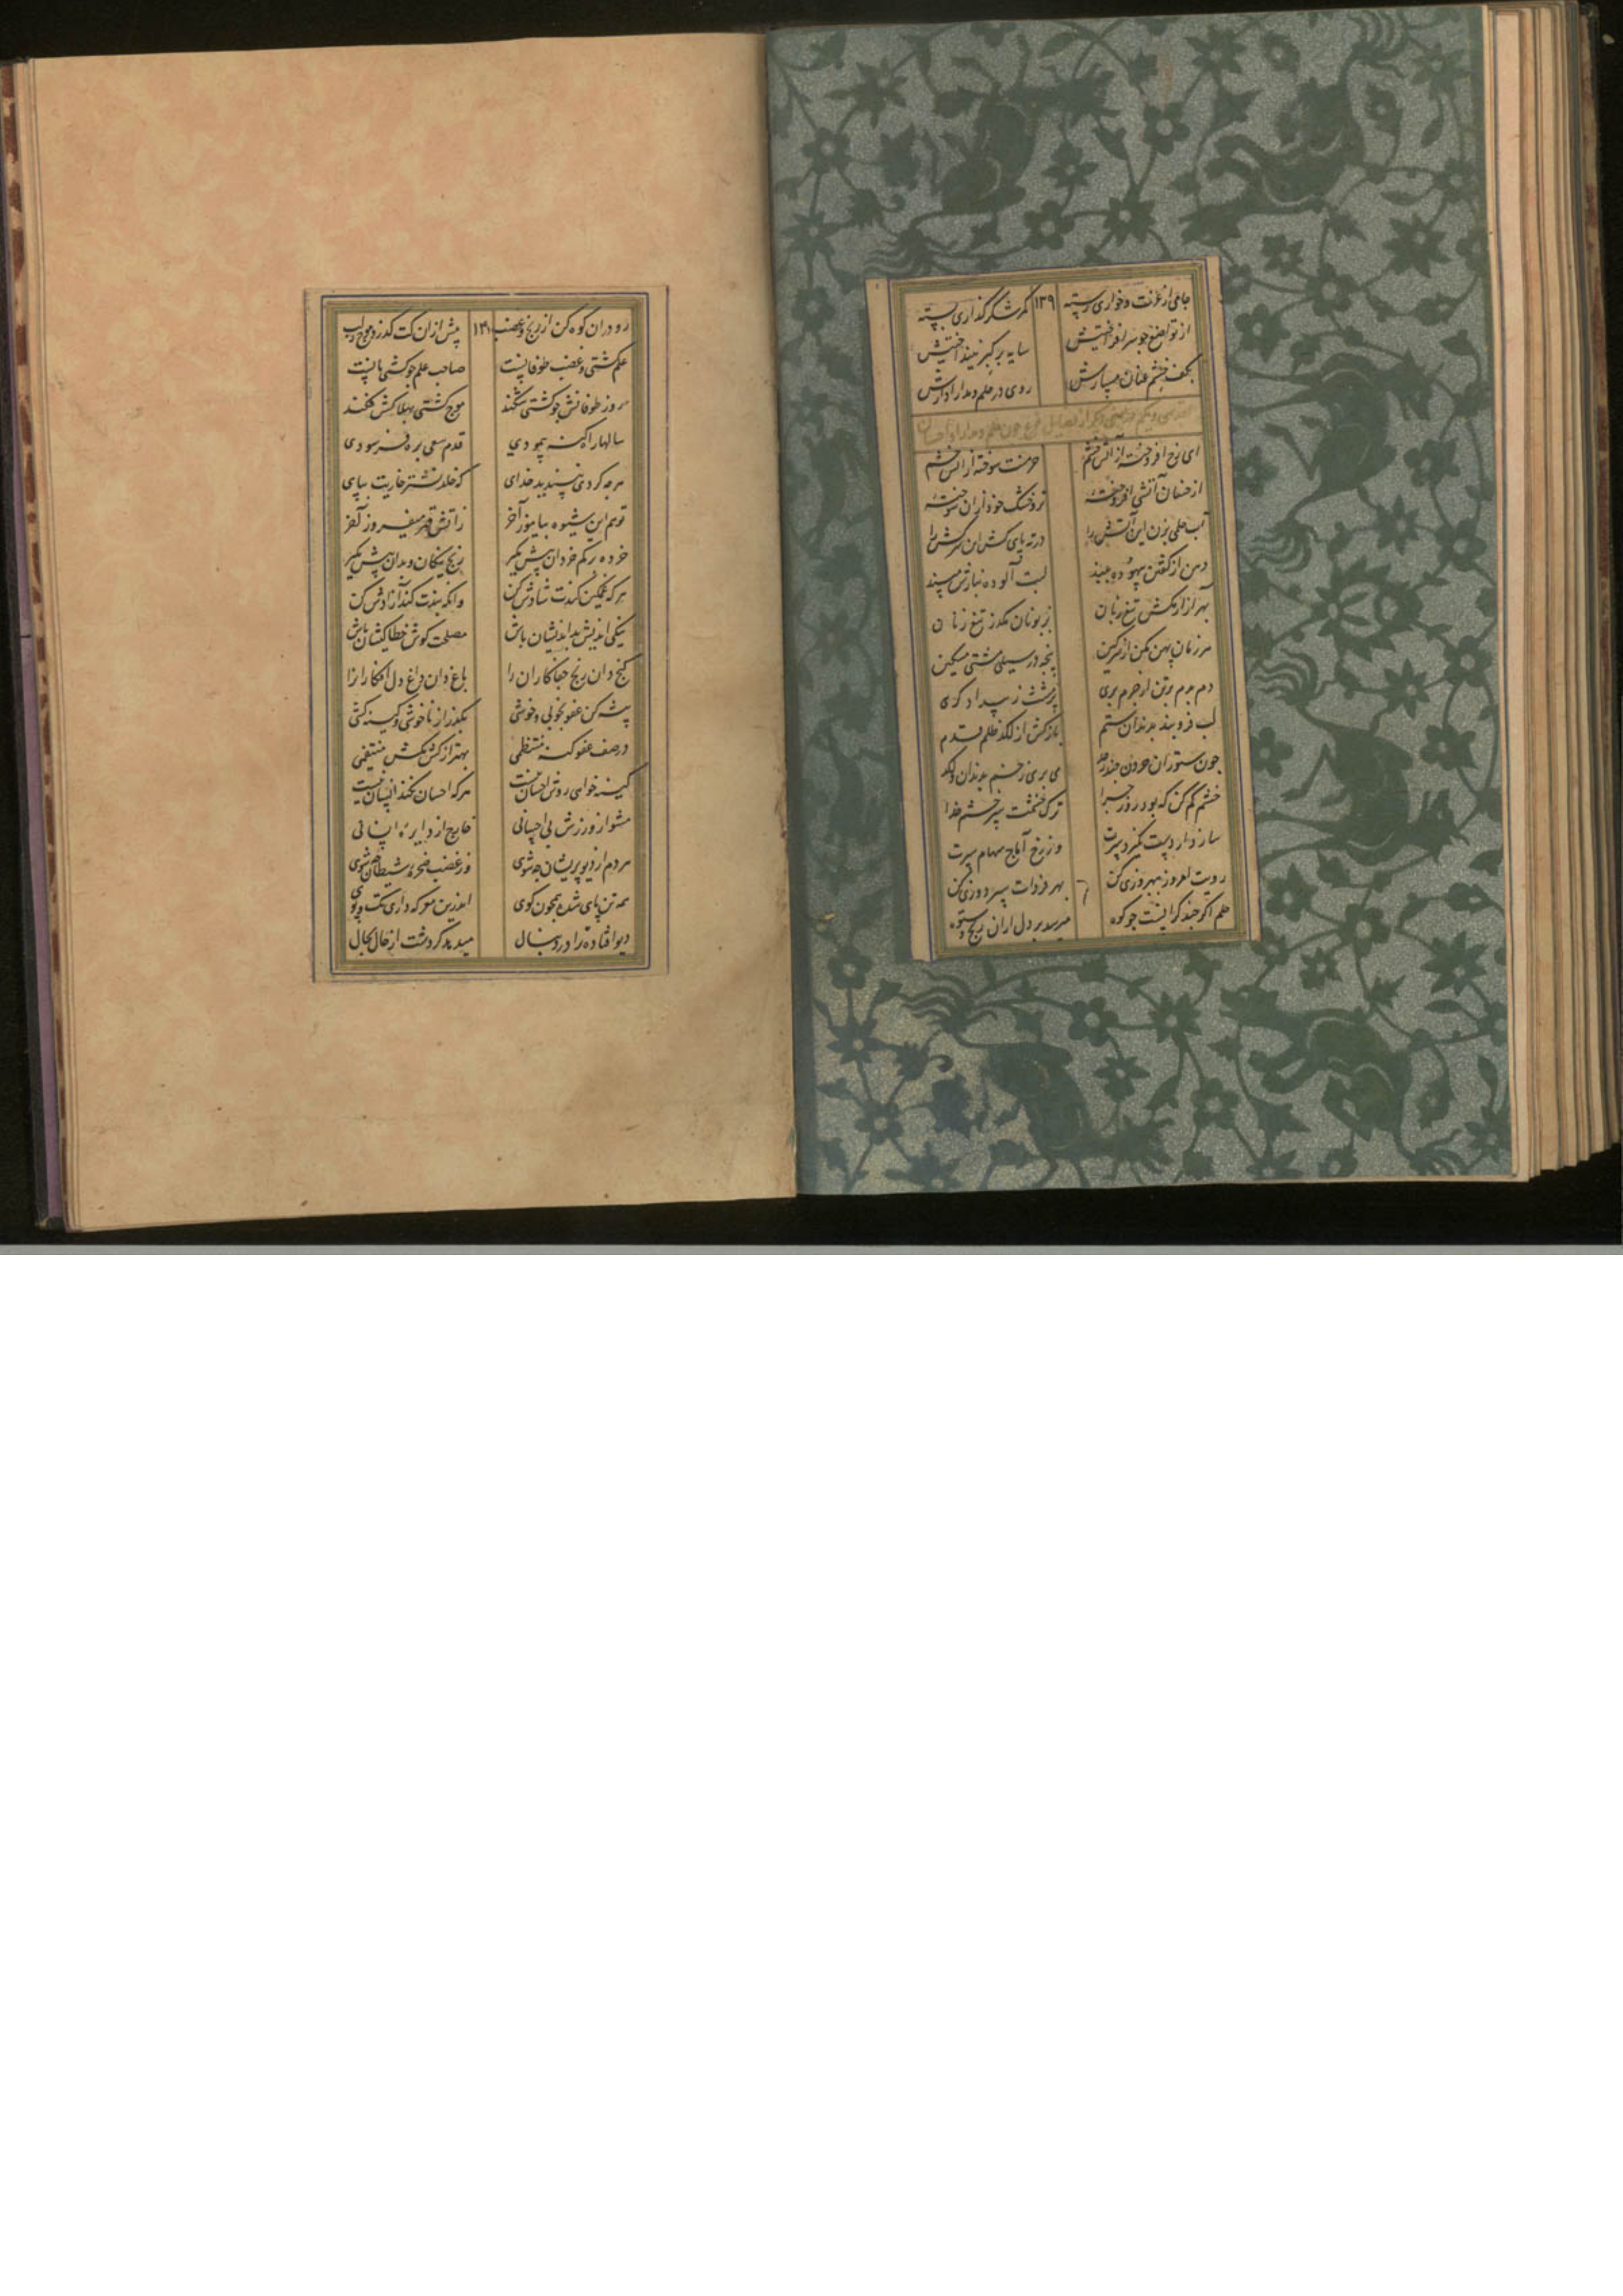 جامی از عزت و خواری رسته ۱۳۹ کمر شکر گذاری بسته
از تواضع جو سر افراختیش سایه بر کبر نینداختیش
بکف خشم عنان مسپارش روی در حلم و مدارا دارش
ای رخ افروخته از آتش خشم خرمنت سوخته از آتش خشم
از حسان آتشی افروخته تر و خشک خود از ان سوخته
آب حلمی بزن این آتش را در ته پای کش این سرکش را
دهن از گفتن بیهوده ببند لب آلوده مپسند
بهر آزار مکش تیغ زبان بزبونان مگذر تیغ زنان
هر زمان پهن مکن از سر کین پنجه در سیلی مشتی مسکین
دم بدم بر تن از جرم بری مشت ز بیدادگری
لب فرو بند بدندان ستم باز کش از لکد ظلم قدم
جون ستوران حرون جند می بری زخم بدندان و لکد
خشم کم کن که بود روز جزا ترک خشمت سپر خشم خدا
ساز دارد سپرت وز رخ آماج سهام سپرت
رویت بهروزی کن بهر فردات سپردوزی کن
حلم اکر جند کرانست جو کوه میرسد بر دل از ان رنج و ستوه
رو در ان کوه کن از رنج و غضب ۱۴۰ پیش از ان کت کذرد موج ز لب
حلم کشتی و غضب طوفانیست صاحب حلم جو کشتی بانیست
روز طوفانش جو کشتی شکند موج کشتی بهلاکش فکند
سالها راه کنه پیمودی قدم سعی بره فرسودی
هرجه کردی نپسندید خدای که خلد نشتر خاریت بپای
تو هم این شیوه بیاموز آخر ز آتش قهر میفروز آخر
خرده کم خردان پیش مکیر رنج نیکان و بدان پیش مکیر
هر که غمکین کندت شادش کن وانکه بندت کند آزادش کن
نیکی اندیش بد اندیشان باش مصلحت کوش خطاکیشان باش
کنج دان رنج جفاکاران را باغ دان داغ دل افکاران را
پیشه کن عفو بخوبی و خوشی بکذر از ناخوشی و کینه کشی
در صف عفو کنه منتظمی بهتر از کش مکش منتقمی
کینه خواهی روش احسان نیست هرکه احسان نکند انسان نیست
مشو از ورزش بی احسانی خارج از دایره انسانی
مردم از دیو پریشان جه شوی وز غضب ضحره شیطان جه شوی
همه تن پای شده همجون کوی اندرین معرکه داری تک و پوی
دیو افتاده ترا در دنبال میدهد کردشت از حال بحال